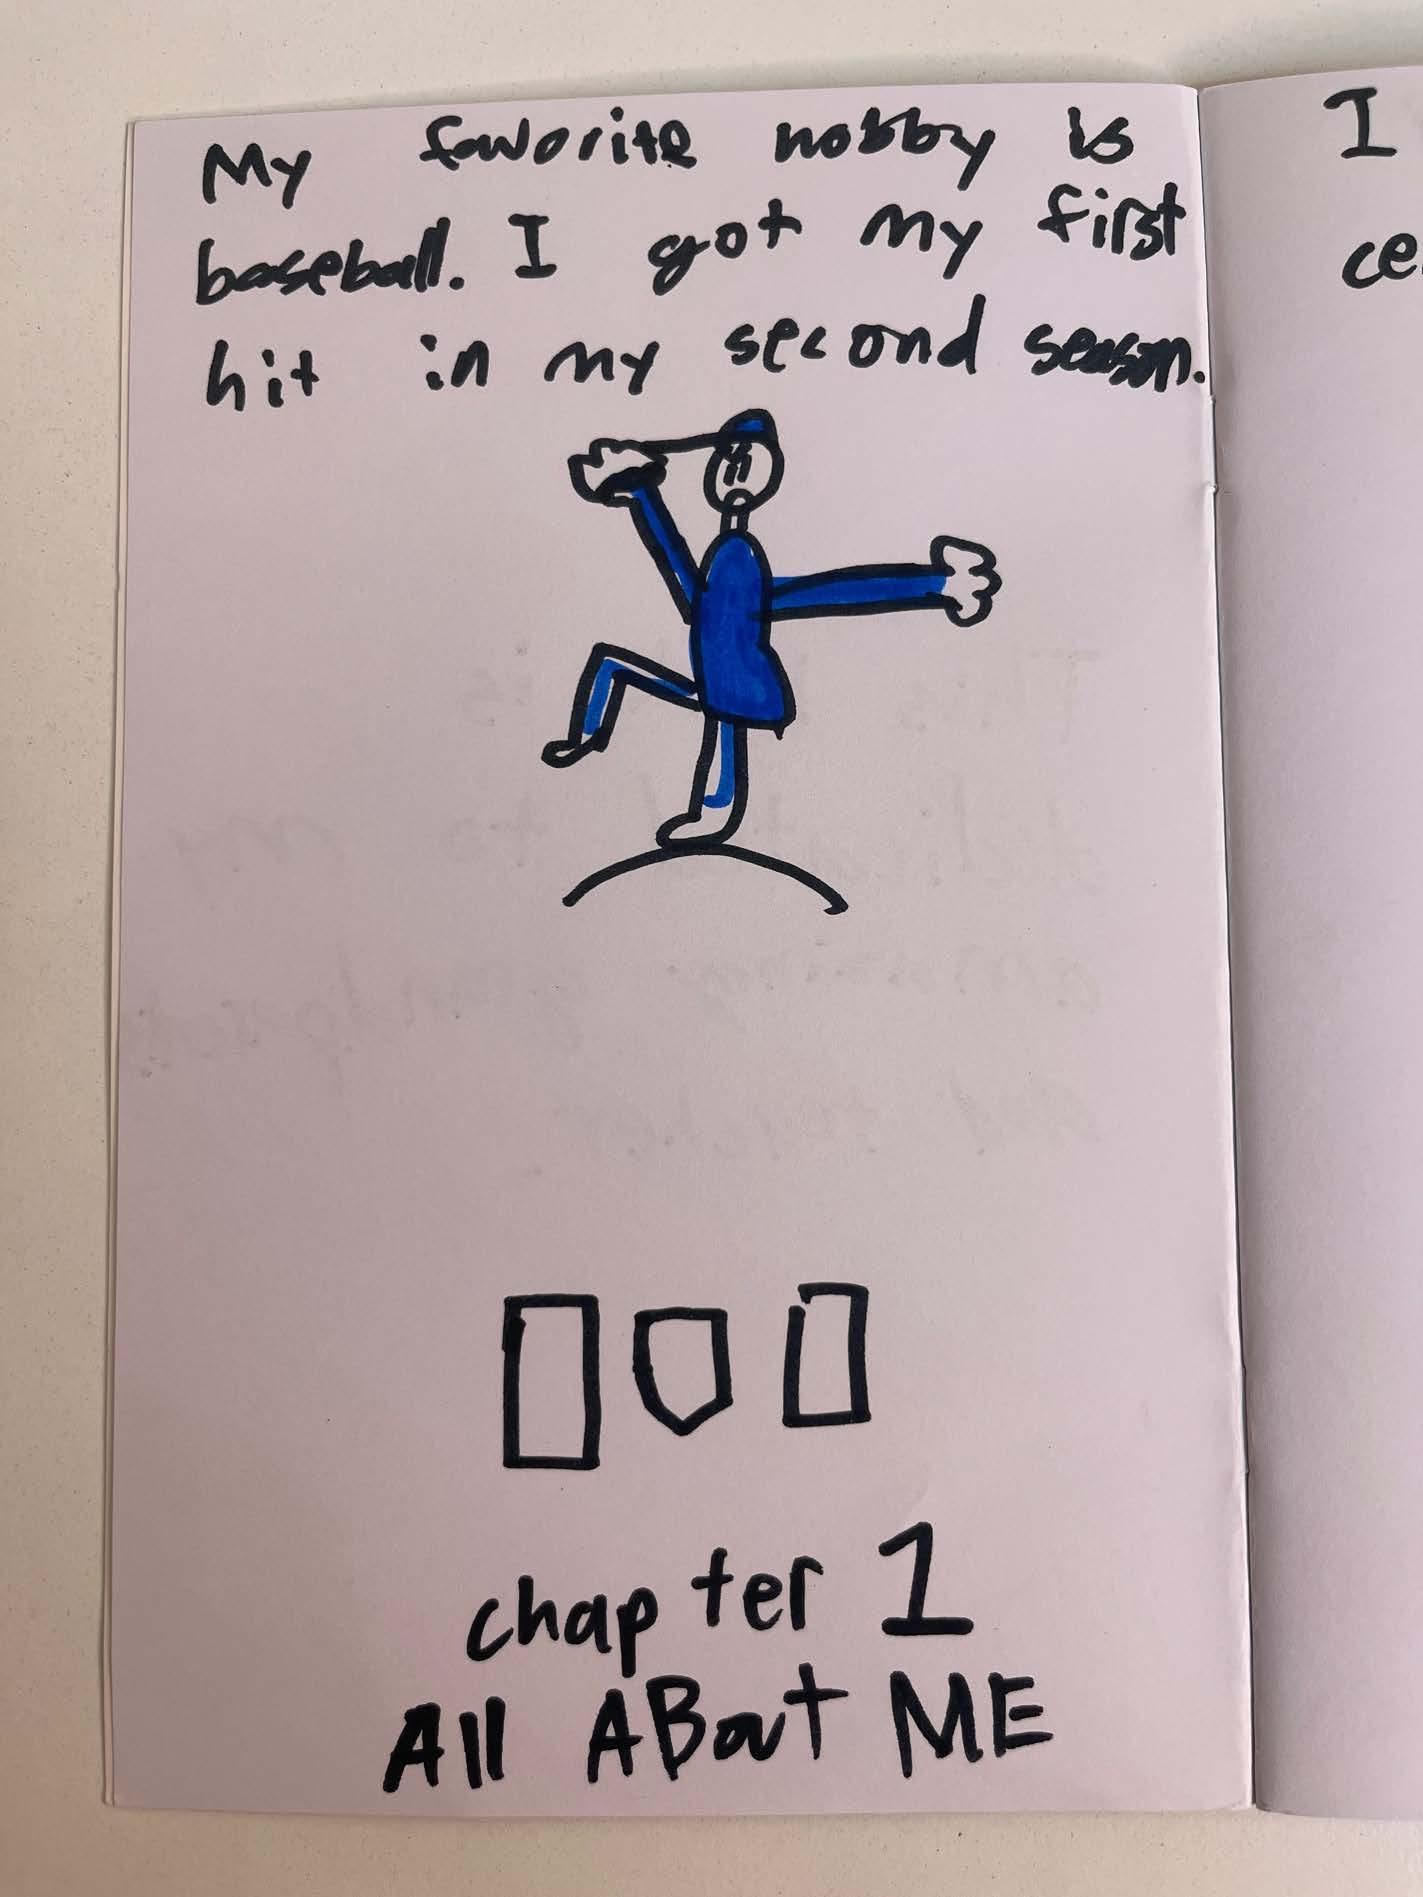 My favorite hobby is
baseball. I got my first
hit in my second season.
chapter 1
All ABout ME
I